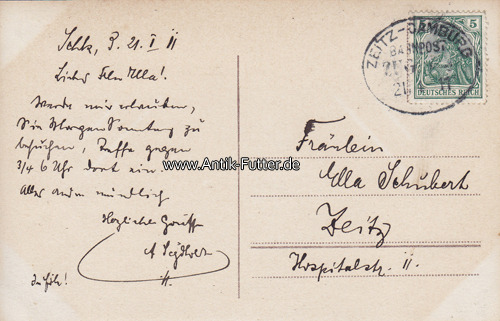 21. I 11
Liebes Frl. Ella!
Werde mir erlauben,
Sie Morgen Sonntag zu
besuchen, treffe gegen
3/4 6 Uhr dort ein
Alles andre mündlich
Herzliche Grüsse
ZEITZ-CAMBURG
BAHNPOST
5
DEUTSCHES REICH
www.Antik-Futter.de
Fräulein
Ella Schubert
Zeitz
Hospitalstr. 11.